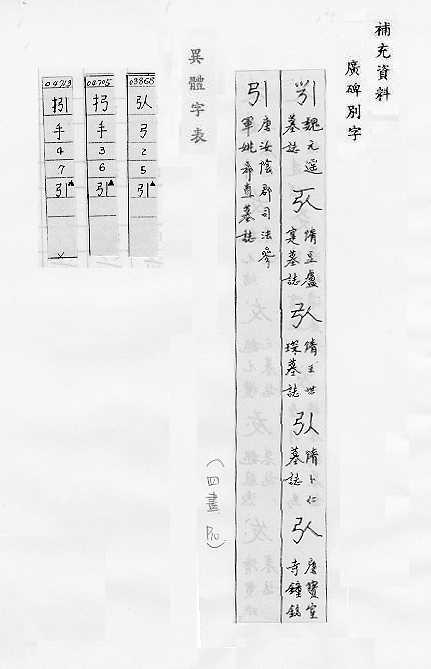 補充資料
廣碑別字
引 魏元遥墓誌 𢎢 隋豆盧寔墓誌 弘 隋王世琛墓誌 弘 隋卜仁墓誌 弘 唐寶室寺鐘銘
引 唐汝陰郡司法參軍姚希直墓誌
(四畫 P10)
異體字表
03868 弓 2 5 引▲
04705 手 3 6 引▲
04713 手 4 7 引▲